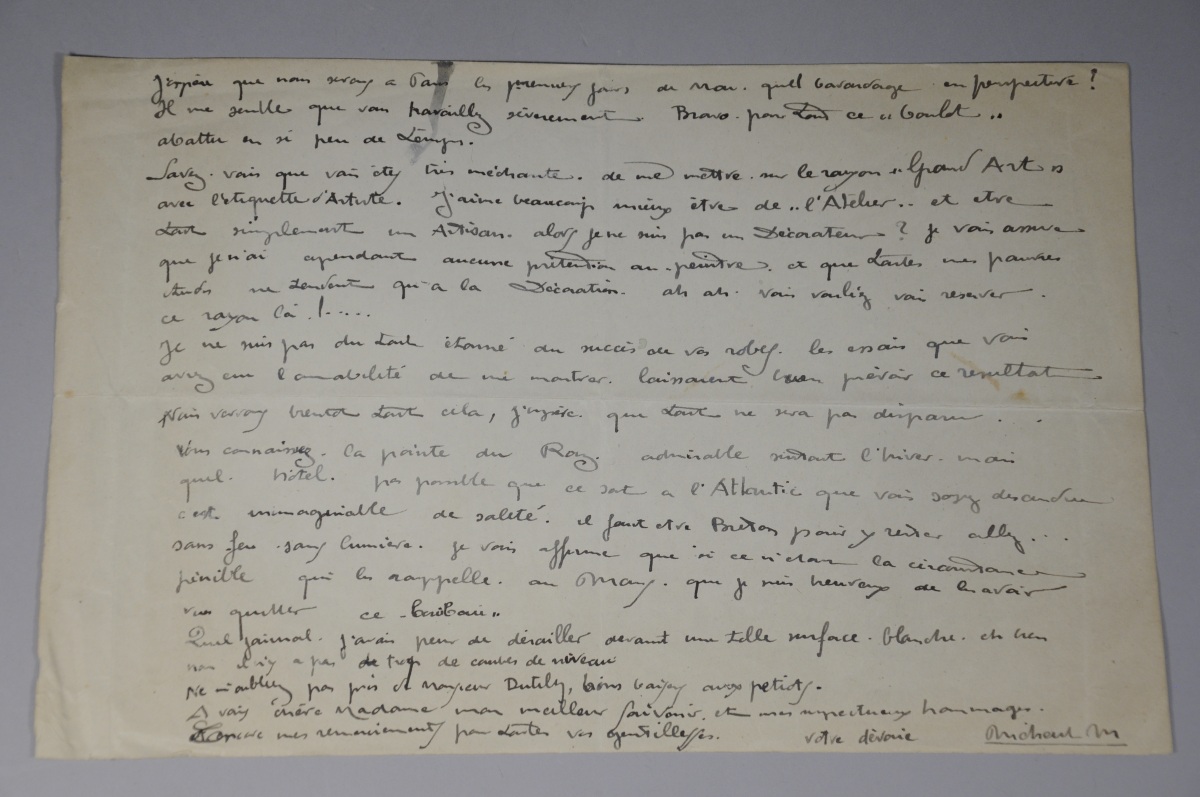 J'espère que nous serons a Paris les premiers jours de Mai. quel bavardage en perspective ?
Il me semble que vous travaillez sévèrement. Bravo. pour tout ce "boulot"
abattu en si peu de temps.
Savez vous que vous êtes très méchante. de me mettre sur le rayon "Grand Art"
avec l'etiquette d'Artiste. J'aime beaucoup mieux être de "l'Atelier" et etre
tout simplement un Artisan. alors je ne suis pas un Décorateur ? je vous assure
que je n'ai cependant aucune prétention au peintre. et que toutes mes pauvres
études ne tendent qu'a la Décoration. ah ah. vous vouliez vous reserver
ce rayon là !.....
Je ne suis pas du tout étonné du succès de vos robes. les essais que vous
avez eu l'amabilité de me montrer. laissaient bien prévoir ce resultat
Nous verrons bientot tout cela, j'espère. que tout ne sera pas disparu . . .
Vous connaissez la pointe du Raz. admirable surtout l'hiver. mais
quel hôtel. pas possible que ce soit a l'Atlantic que vous soyez descendue
c'est immaginable de saleté. il faut etre Breton pour y rester allez...
sans feu sans lumière. je vous affirme que si ce n'était la circonstance
pénible qui les rappelle au Mans. que je suis heureux de les avoir
vus quitter ce
Quel journal. j'avais peur de dérailler devant une telle surface blanche. eh bien
non il n'y a pas de trop de courbes de niveau
Ne m'oubliez pas près de Monsieur Dutilly, bons baisers aux petiots.
A vous chère Madame mon meilleur souvenir. et mes respectueux hommages.
Encore mes remerciements pour toutes vos gentillesses. votre dévoué